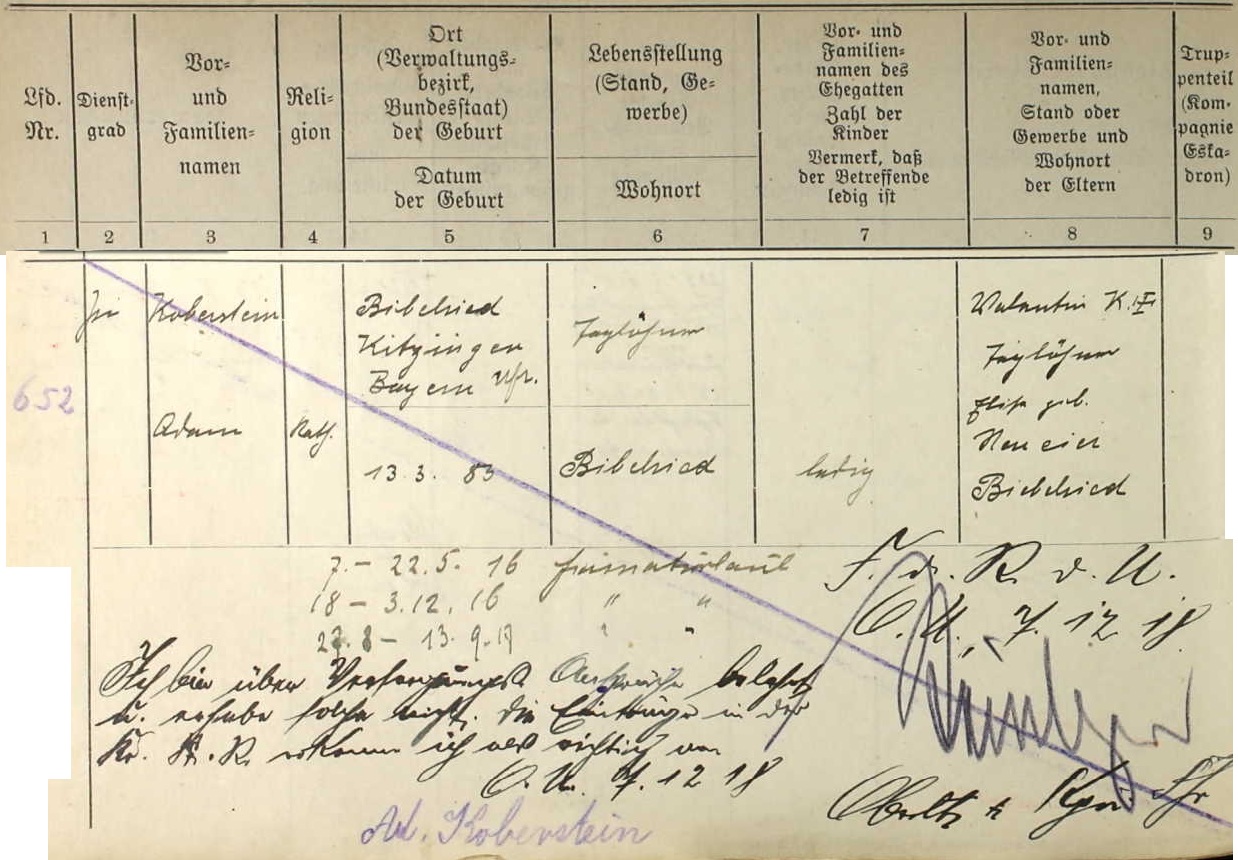 Lfd.
Nr.
Dienst-
grad
Vor-
und
Familien-
namen
Reli-
gion
Ort
(Verwaltungs-
bezirk,
Bundesstaat)
der Geburt
Datum
der Geburt
Lebensstellung
(Stand, Ge-
werbe)
Wohnort
Vor- und
Familien-
namen des
Ehegatten
Zahl der
Kinder
Vermerk, daß
der Betreffende
ledig ist
Vor- und
Familien-
namen,
Stand oder
Gewerbe und
Wohnort
der Eltern
Trup-
penteil
(Kom-
pagnie
Eska-
dron)
1 2 3 4 5 6 7 8 9
652
Koberstein
Adam
Kath.
Bibelried
Kitzingen
Bayern Ufr.
13. 3. 83
Taglöhner
Bibelried
ledig
Valentin K. II
Taglöhner
Elise geb.
Neueier
Biebelried
7. – 22. 5. 16 Heimaturlaub
18 – 3. 12. 16 " "
27. 8 – 13. 9. 17 " "
Ich bin über Versorgungs Ansprüche belehrt
u. erhebe solche nicht. Die Einträge in der
Kr. St. R. erkenne ich als richtig an
O. U. 7. 12 18
Ad. Koberstein
F. d. R. d. U.
O. U., 7. 12 18
Oberlt. u. Komp. Fhr